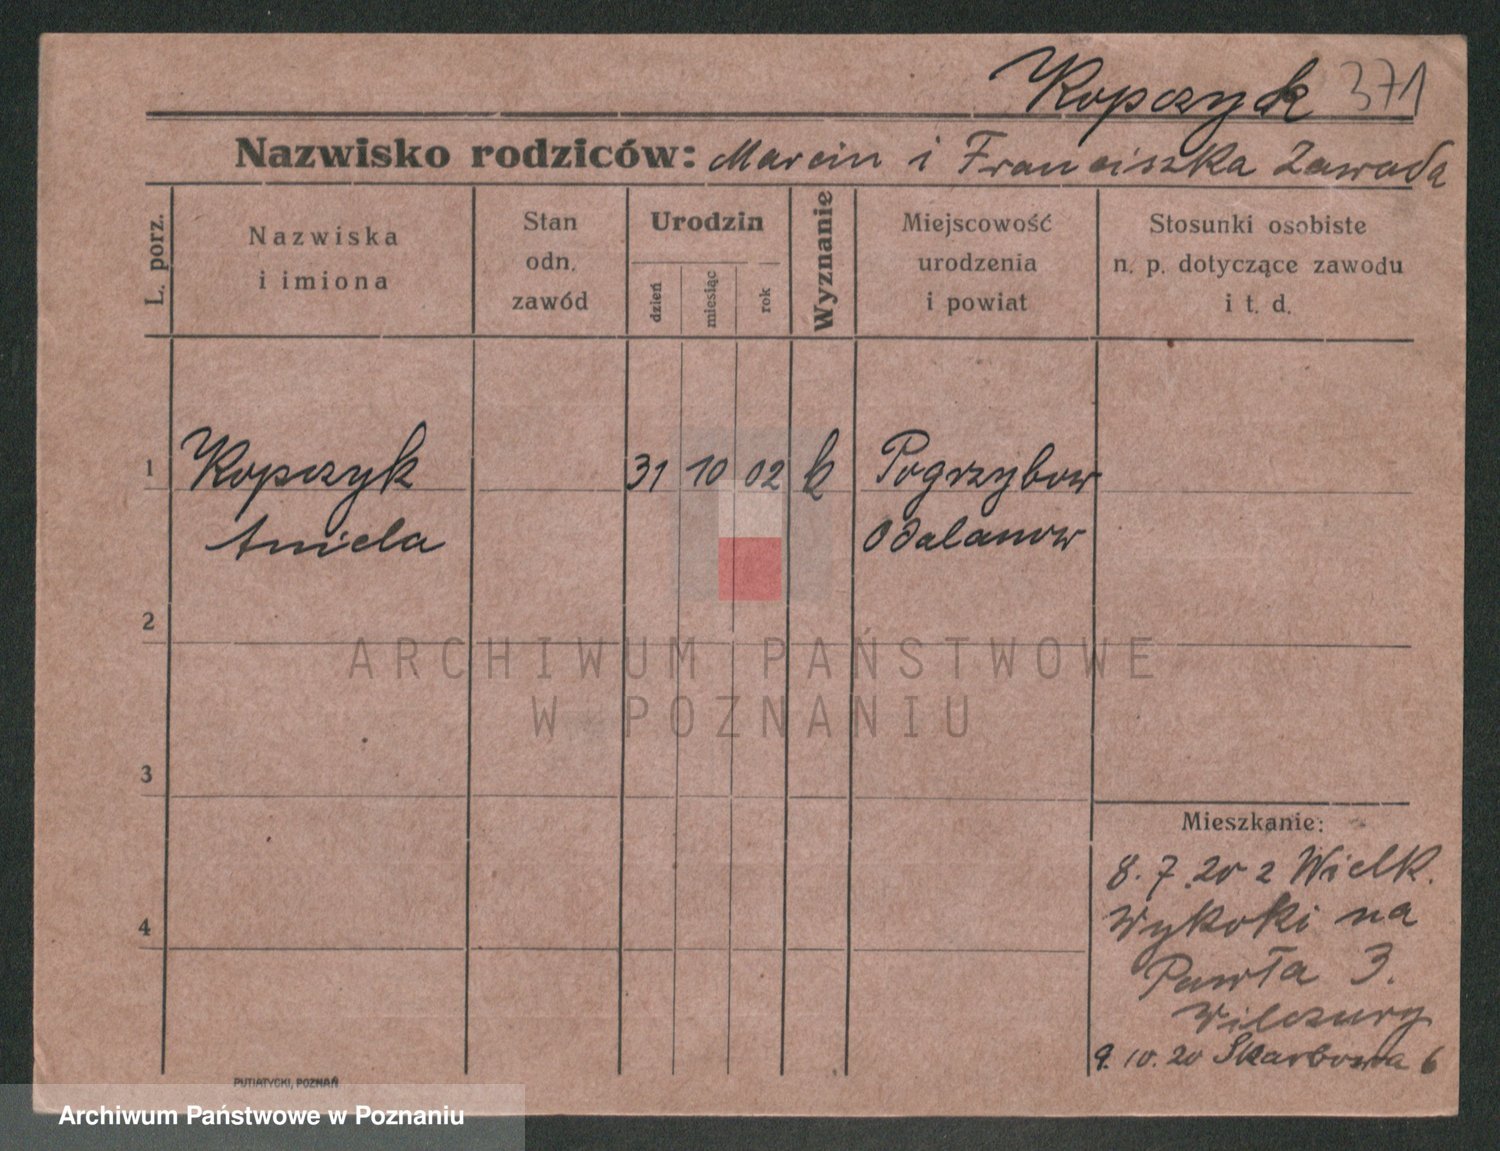 Kopczyk 371
Nazwisko rodziców: Marcin i Franciszka Zawada
L. porz.
Nazwiska
i imiona
Stan
odn.
zawód
Urodzin
dzień
miesiąc
rok
Wyznanie
Miejscowość
urodzenia
i powiat
Stosunki osobiste
n. p. dotyczące zawodu
i t. d.
1 Kopczyk 31 10 02 k Pogrzybow
Aniela Odalanow
2
3
4
Mieszkanie:
8. 7. 20 z Wielk.
Wykoki na
Pawła 3.
Wilczury
9. 10. 20 Skarbowa 6
PUTIATYCKI, POZNAŃ
ARCHIWUM PAŃSTWOWE
W POZNANIU
Archiwum Państwowe w Poznaniu